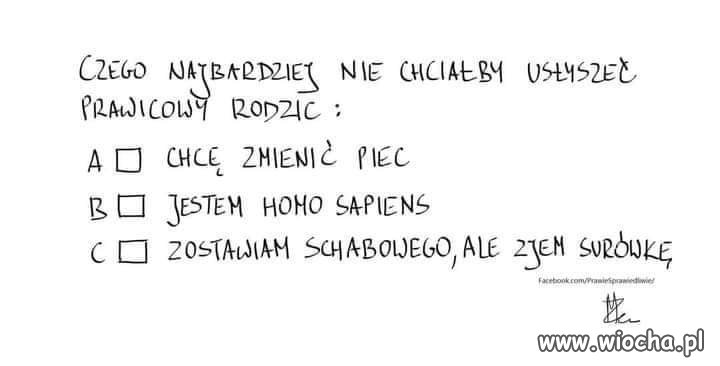 CZEGO NAJBARDZIEJ NIE CHCIAŁBY USŁYSZEĆ
PRAWICOWY RODZIC:
A CHCĘ ZMIENIĆ PIEC
B JESTEM HOMO SAPIENS
C ZOSTAWIAM SCHABOWEGO, ALE ZJEM SURÓWKĘ
Facebook.com/PrawieSprawiedliwie/
www.wiocha.pl